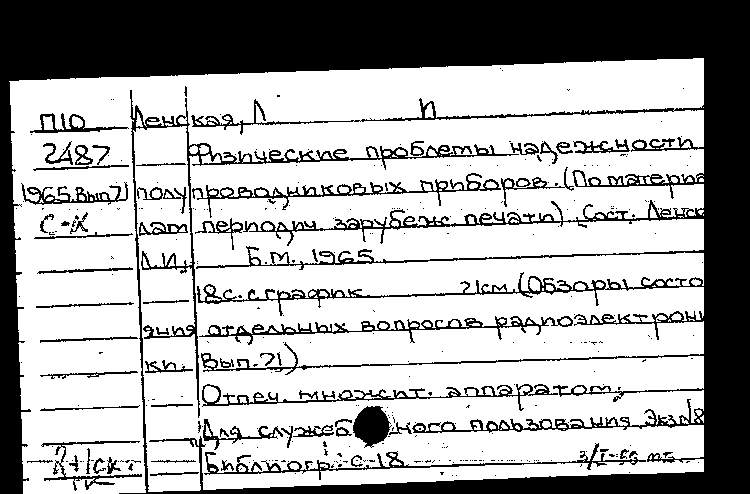 П10 Ленская, Л И
2487 Физические проблемы надежности
1965.Вып.21 полупроводниковых приборов. (По материа
С-Х лам периодич. зарубеж. печати). Сост. Ленск
Л.И., Б.М., 1965.
18с. с график. 21см. (Обзоры состо
яния отдельных вопросов радиоэлектрони
ки. Вып. 21).
Отпеч. множит. аппаратом.
"Для служебного пользования Экз №8
Библиогр: с. 18